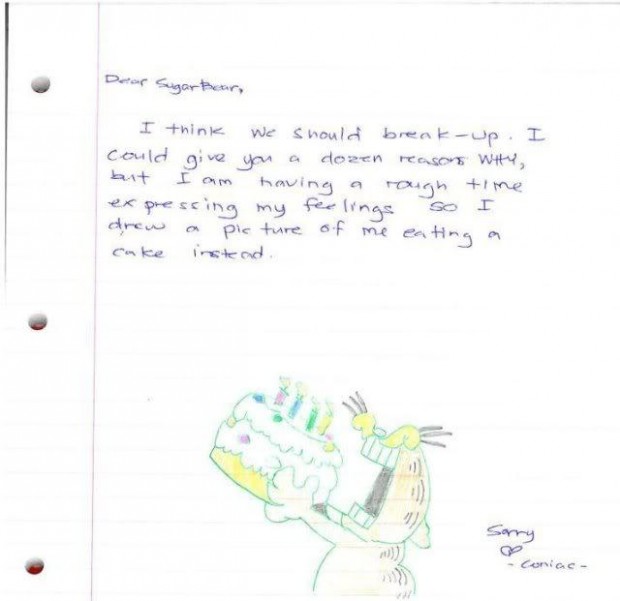 Dear SugarBear,
I think we should break-up. I
could give you a dozen reasons WHY,
but I am having a rough time
expressing my feelings so I
drew a picture of me eating a
cake instead.
Sorry
- Coniac -